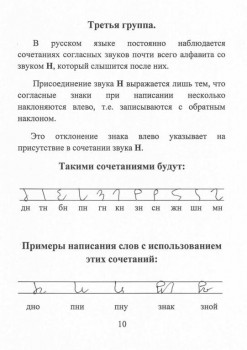 Третья группа.
В русском языке постоянно наблюдается
сочетаниях согласных звуков почти всего алфавита со
звуком Н, который слышится после них.
Присоединение звука Н выражается лишь тем, что
согласные знаки при написании несколько
наклоняются влево, т.е. записываются с обратным
наклоном.
Это отклонение знака влево указывает на
присутствие в сочетании звука Н.
Такими сочетаниями будут:
дн тн бн пн гн кн зн сн жн шн мн
Примеры написания слов с использованием
этих сочетаний:
дно пни пну знак зной
10